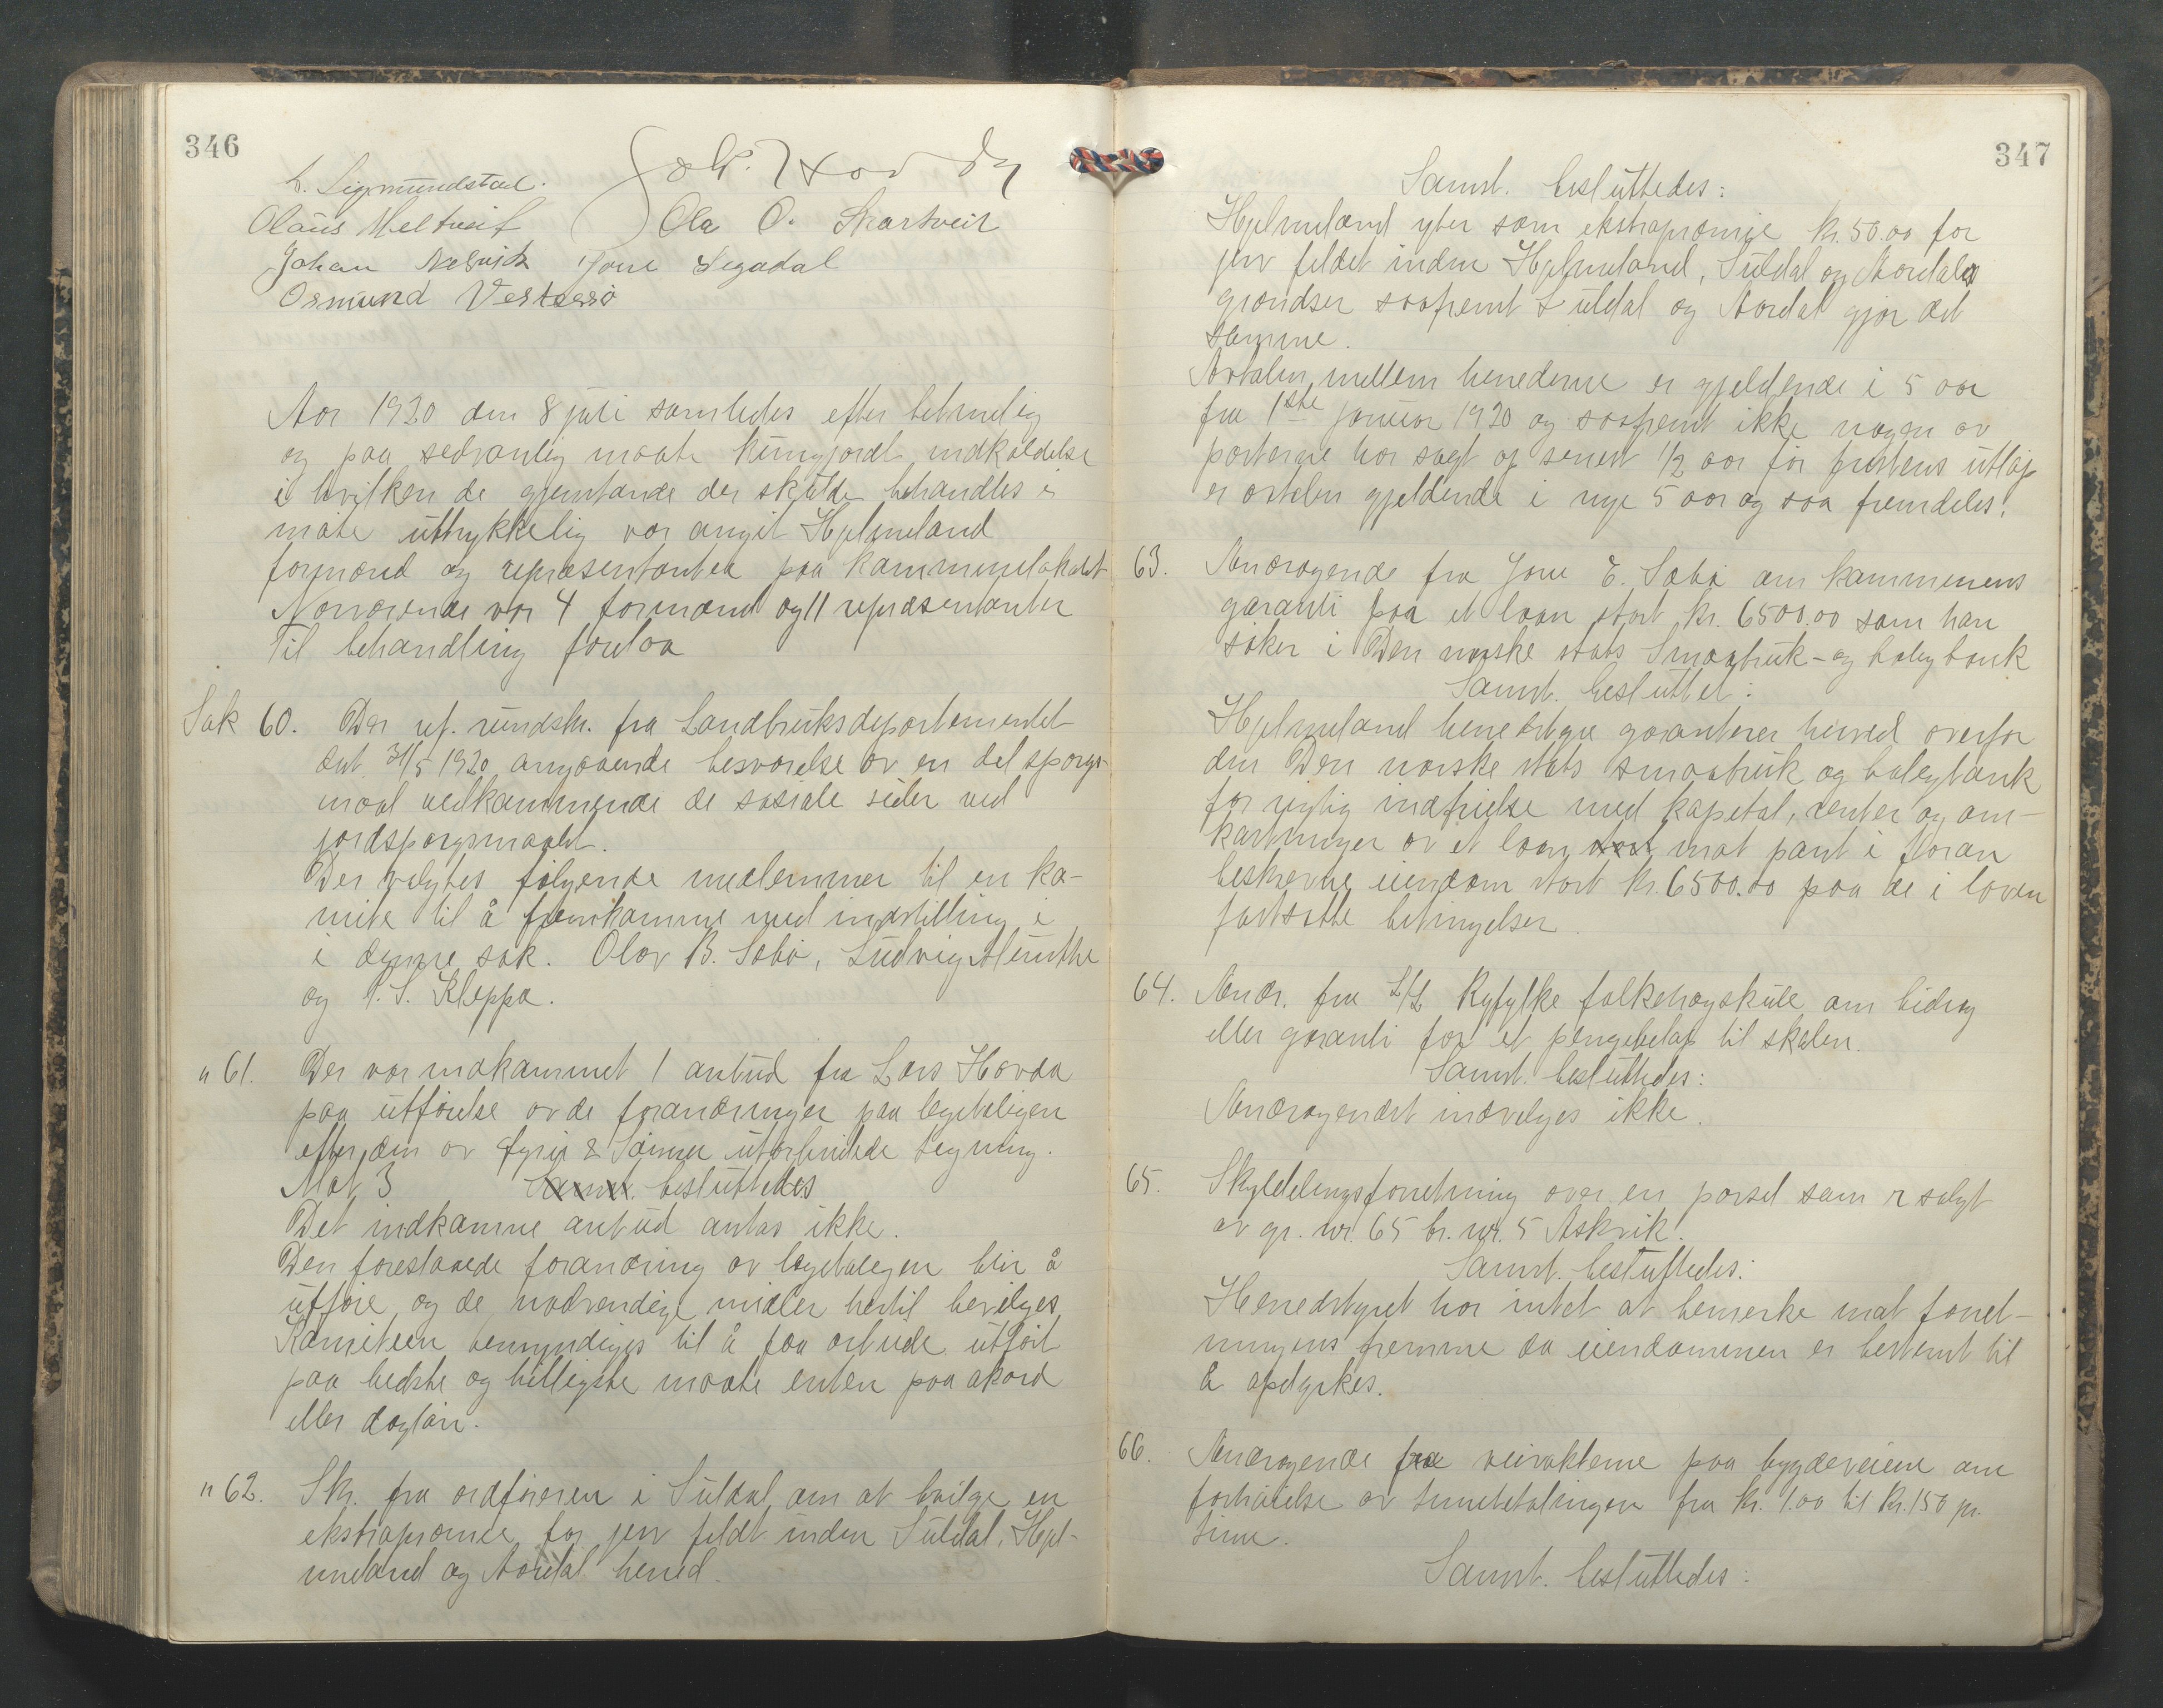 346
L. Sigmundstad.
Olaus Meltveit Ola O. Skartveit
Johan Nesvik Jone Segadal
Osmund Vestersjø
Aar 1920 den 8 juli samledes efter betimelig
og paa sedvanlig maate kungjordt indkaldelse
i hvilken de gjenstande der skulde behandles i
møte uttrykkelig var angit Hjelmeland
formænd og representanter paa kommunelokalet
Nærværende var 4 formænd og 11 repræsentanter
Til behandling forelaa
Sak 60. Der ref. rundskr. fra Landbruksdepartementet
dat 31/5 1920 angaaende besvarelse av en del spørgs-
maal vedkommende de sosiale sider ved
jordspørgsmaalet.
Der valgtes følgende medlemmer til en ko-
mite til å fremkomme med indstilling i
i denne sak. Olav B. Sæbø, Ludvig Munthe
og P. S. Kleppa.
" 61. Der var indkommet 1 anbud fra Lars Hovda
paa utførelse av de forandringer paa lægeboligen
efter den av Eyrir & Sømme utarbeidede tegning.
Mot 3 Samst. besluttedes
Det indkomne anbud antas ikke.
Den foreslaaede forandring av lægeboligen blir å
utføre og de nødvendige midler hertil bevilges
Komiteen bemyndiges til å faa arbeide utført
paa bedste og billigste maate enten paa akord
eller dagløn.
" 62. Skr. fra ordføreren i Suldal om at bevilge en
ekstrapræmie for jerv fældt inden Suldal, Hjel-
meland og Aardal herred.
347
Samst. besluttedes:
Hjelmeland yter som ekstrapræmie kr. 50.00 for
jerv feldet inden Hjelmeland, Suldal og Aardals
grændser saafremt Suldal og Aardal gjør det
samme.
Avtalen mellem herederne er gjeldende i 5 aar
fra 1ste januar 1920 og saafremt ikke nogen av
parterne har sagt op senest 1/2 aar før fristens utløp
er avtalen gjeldende i nye 5 aar og saa fremdeles.
63. Andragende fra Jone E. Sæbø om kommunens
garanti paa et laan stort kr. 6500.00 som han
søker i Den norske stats Smaabruk- og boligbank
Samst. besluttet:
Hjelmeland herredstyre garanterer herved overfor
den Den norske stats smaabruk og boligbank
for rigtig indfrielse med kapital, renter og om-
kostninger av et laan stort mot pant i foran
beskrevne eiendom stort kr. 6500.00 paa de i loven
fastsatte betingelser.
64. Andr. fra L/L Ryfylke folkehøgskule om bidrag
eller garanti for et pengebeløp til skolen.
Samst. besluttedes:
Andragendet indvilges ikke.
65. Skylddelingsforretning over en parsel som er solgt
av gr. nr. 65 br. nr. 5 Askvik.
Samst. besluttedes:
Herredstyret har intet at bemerke mot forret-
ningens fremme da eiendommen er bestemt til
å opdyrkes.
66. Andragende fra veivokterne paa bygdeveiene om
forhøielse av timebetalingen fra kr. 1.00 til kr. 1.50 pr.
time.
Samst. besluttedes: